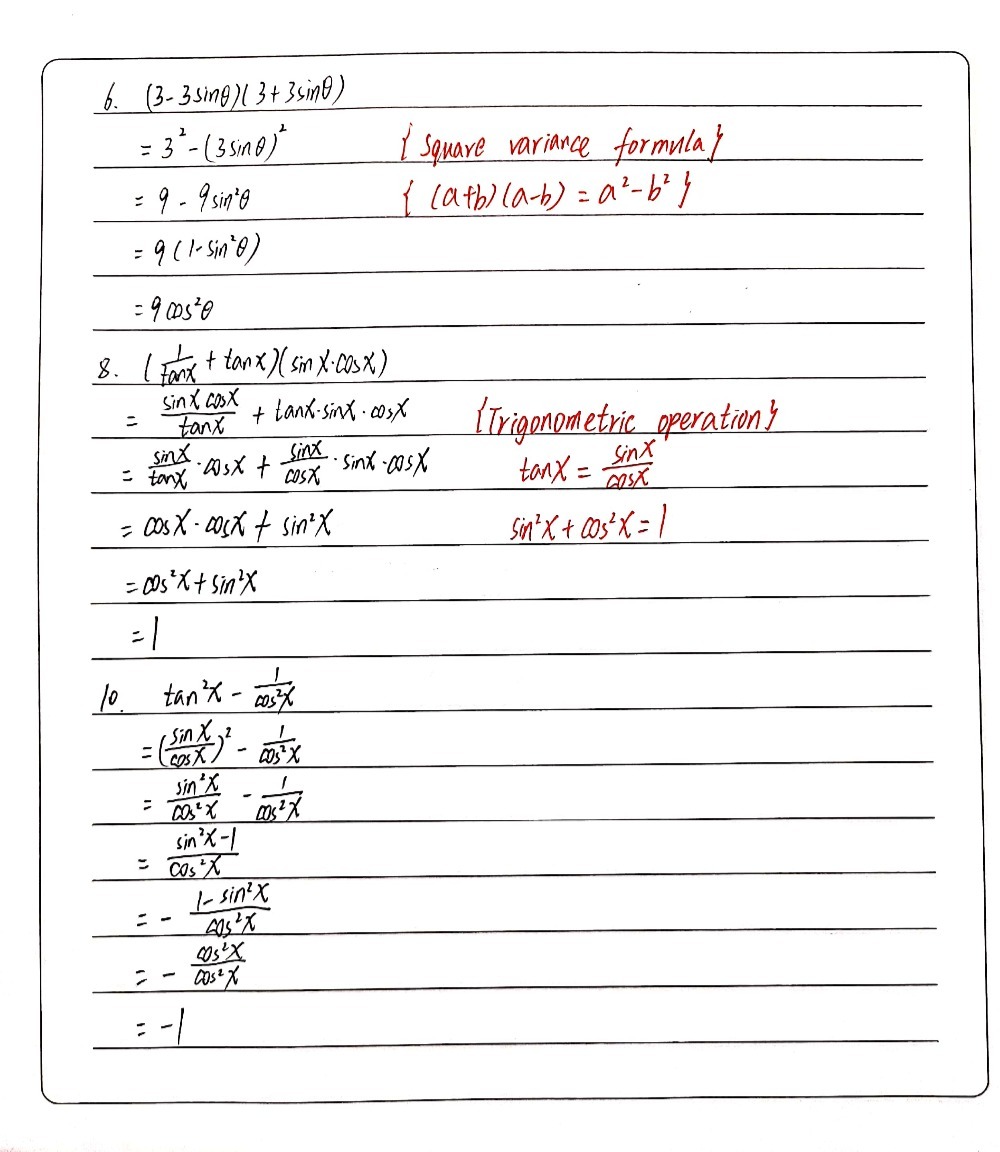 6. (3-3sinθ)(3+3sinθ)
= 3² - (3sinθ)² { Square variance formula }
= 9 - 9sin²θ { (a+b)(a-b) = a² - b² }
= 9(1-sin²θ)
= 9cos²θ
8. (1/tanx + tanx)(sinx·cosx)
= sinx cosx/tanx + tanx·sinx·cosx {Trigonometric operation}
= sinx/tanx·cosx + sinx/cosx·sinx·cosx tanx = sinx/cosx
= cosx·cosx + sin²x sin²x + cos²x = 1
= cos²x + sin²x
= 1
10. tan²x - 1/cos²x
= (sinx/cosx)² - 1/cos²x
= sin²x/cos²x - 1/cos²x
= sin²x-1/cos²x
= - 1-sin²x/cos²x
= - cos²x/cos²x
= -1